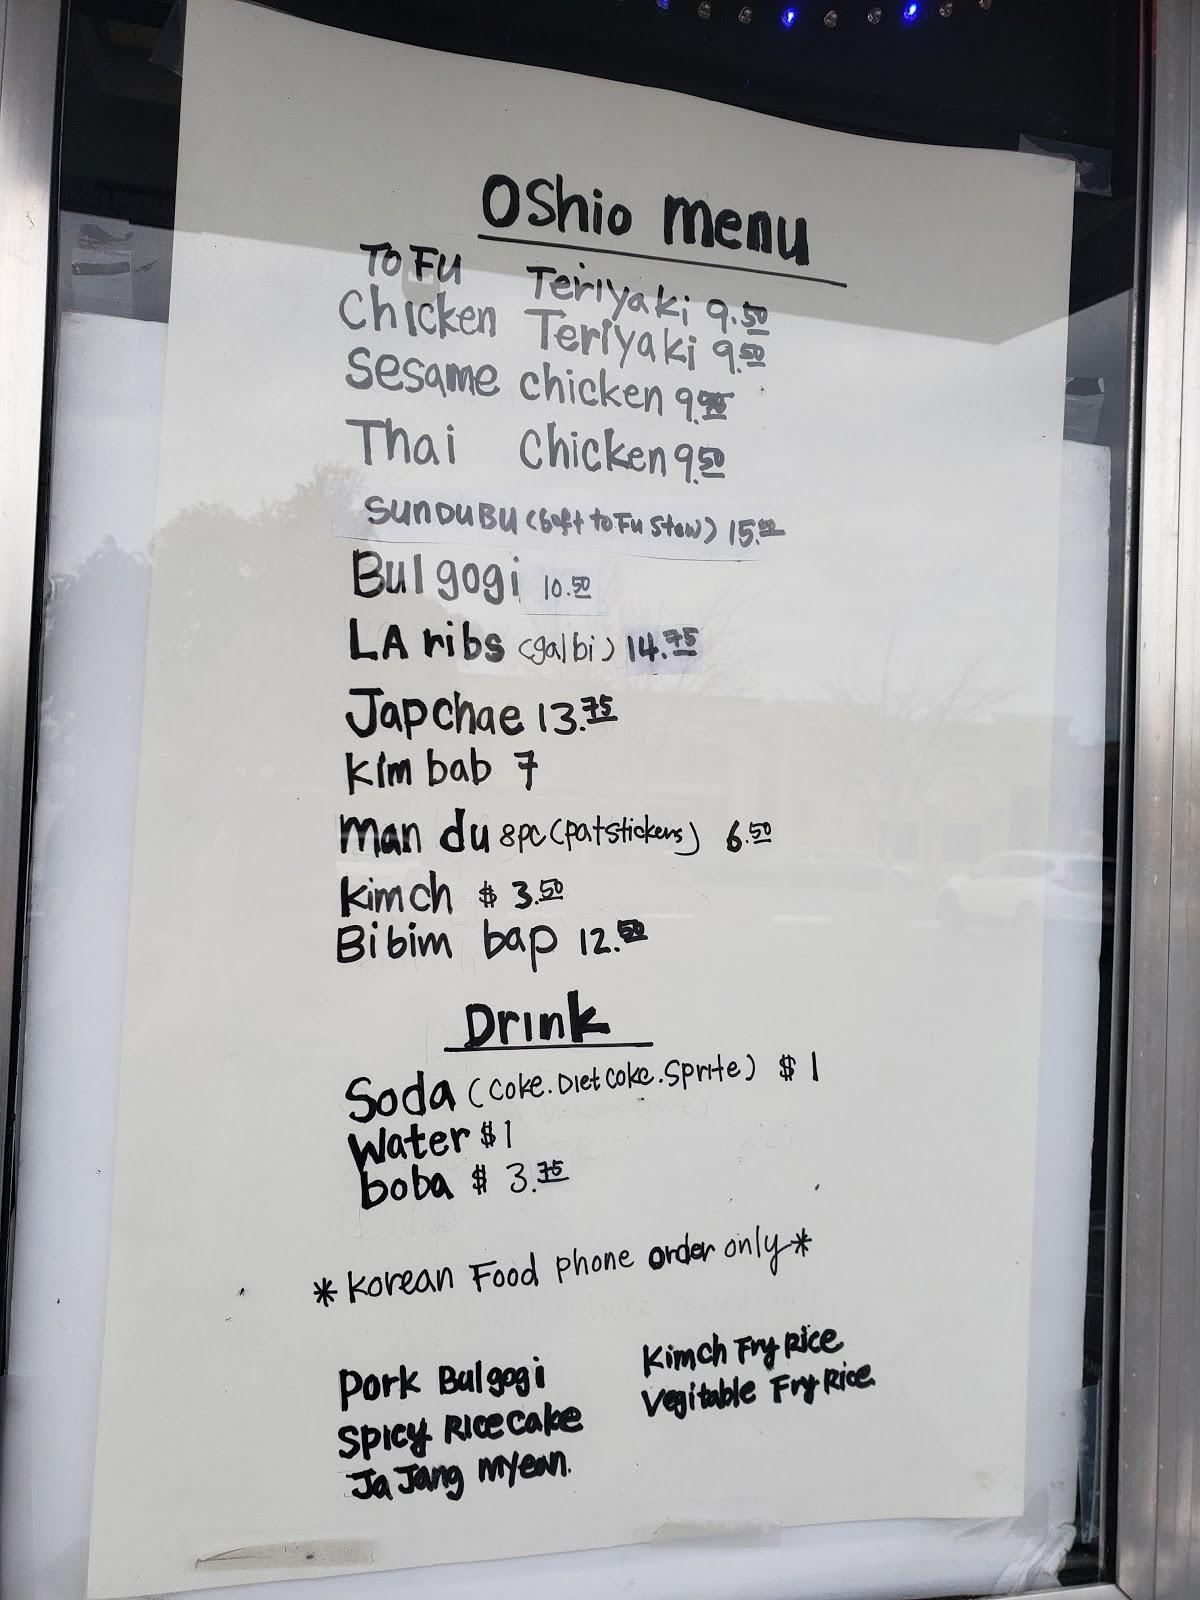 Oshio menu
ToFu Teriyaki 9.50
Chicken Teriyaki 9.50
Sesame chicken 9.
Thai Chicken 9.50
SUNDUBU (Soft toFu Stew) 15.00
Bulgogi 10.50
LA ribs (galbi) 14.75
Japchae 13.75
Kim bab 7
man du 8pc (patstickers) 6.50
Kimch $ 3.50
Bi bim bap 12.50
Drink
Soda (Coke. Diet Coke. Sprite) $ 1
Water $ 1
boba $ 3.75
* Korean Food phone order only *
Pork Bulgogi
Spicy Rice Cake
Ja Jang myean.
Kimch Fry Rice
Vegitable Fry Rice